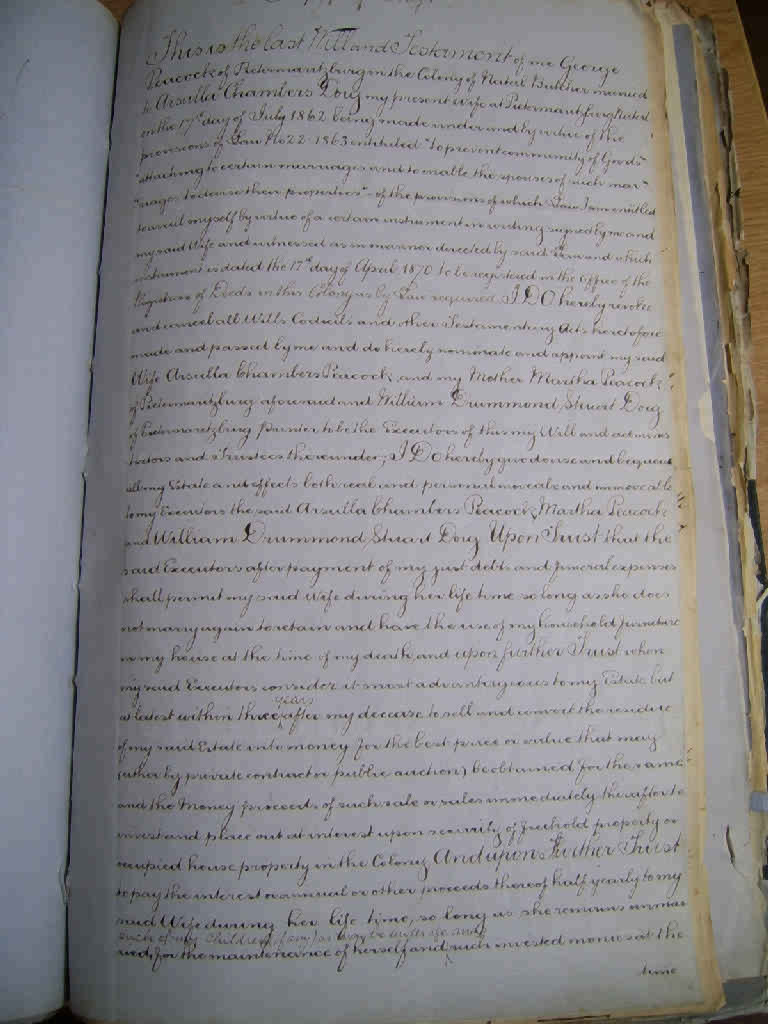 This is the last Will and Testament of me George
Peacock of Pietermaritzburg in the Colony of Natal Butcher married
to Arsulla Chambers Doig my present wife at Pietermaritzburg
on the 17th day of July 1862 being made under and by virtue of the
provisions of Law No 22 1863 entituled "to prevent community of Goods"
"attaching to certain marriages and to enable the spouses of such mar"
"riages to devise their properties" of the provisions of which Law I am entitled
to avail myself by virtue of a certain instrument in writing signed by me and
my said Wife and witnessed as in manner directed by said Law and which
instrument is dated the 17th day of April 1870 to be registered in the Office of the
Registrar of Deeds in this Colony as by Law required I DO hereby revoke
and cancel all Wills Codicils and other Testamentary Acts heretofore
made and passed by me and do hereby nominate and appoint my said
Wife Arsulla Chambers Peacock, and my Mother Martha Peacock
of Pietermaritzburg aforesaid and William Drummond Stuart Doig
of Pietermaritzburg Printer to be the Executors of this my Will and adminis
trators and Trustees thereunder; I DO hereby give devise and bequeath
all my Estate and effects both real and personal moveable and immoveable
to my Executors the said Arsulla Chambers Peacock, Martha Peacock
and William Drummond Stuart Doig Upon Trust that the
said Executors after payment of my just debts and funeral expenses
shall permit my said Wife during her life time so long as she does
not marry again to retain and have the use of my household furniture
in my house at the time of my death, and upon further Trust when
my said Executors consider it most advantageous to my Estate but
at latest within three years after my decease to sell and convert the residue
of my said Estate into money for the best price or value that may
(either by private contract or public auction) be obtained for the same
and the Money proceeds of such sale or sales immediately thereafter to
invest and place out at interest upon security of freehold property or
occupied house property in the Colony And upon Further Trust
to pay the interest or annual or other proceeds thereof half yearly to my
said Wife during her life time, so long as she remains unmar
such of my children if any as may be under age and
ried, for the maintenance of herself and such invested monies at the
time